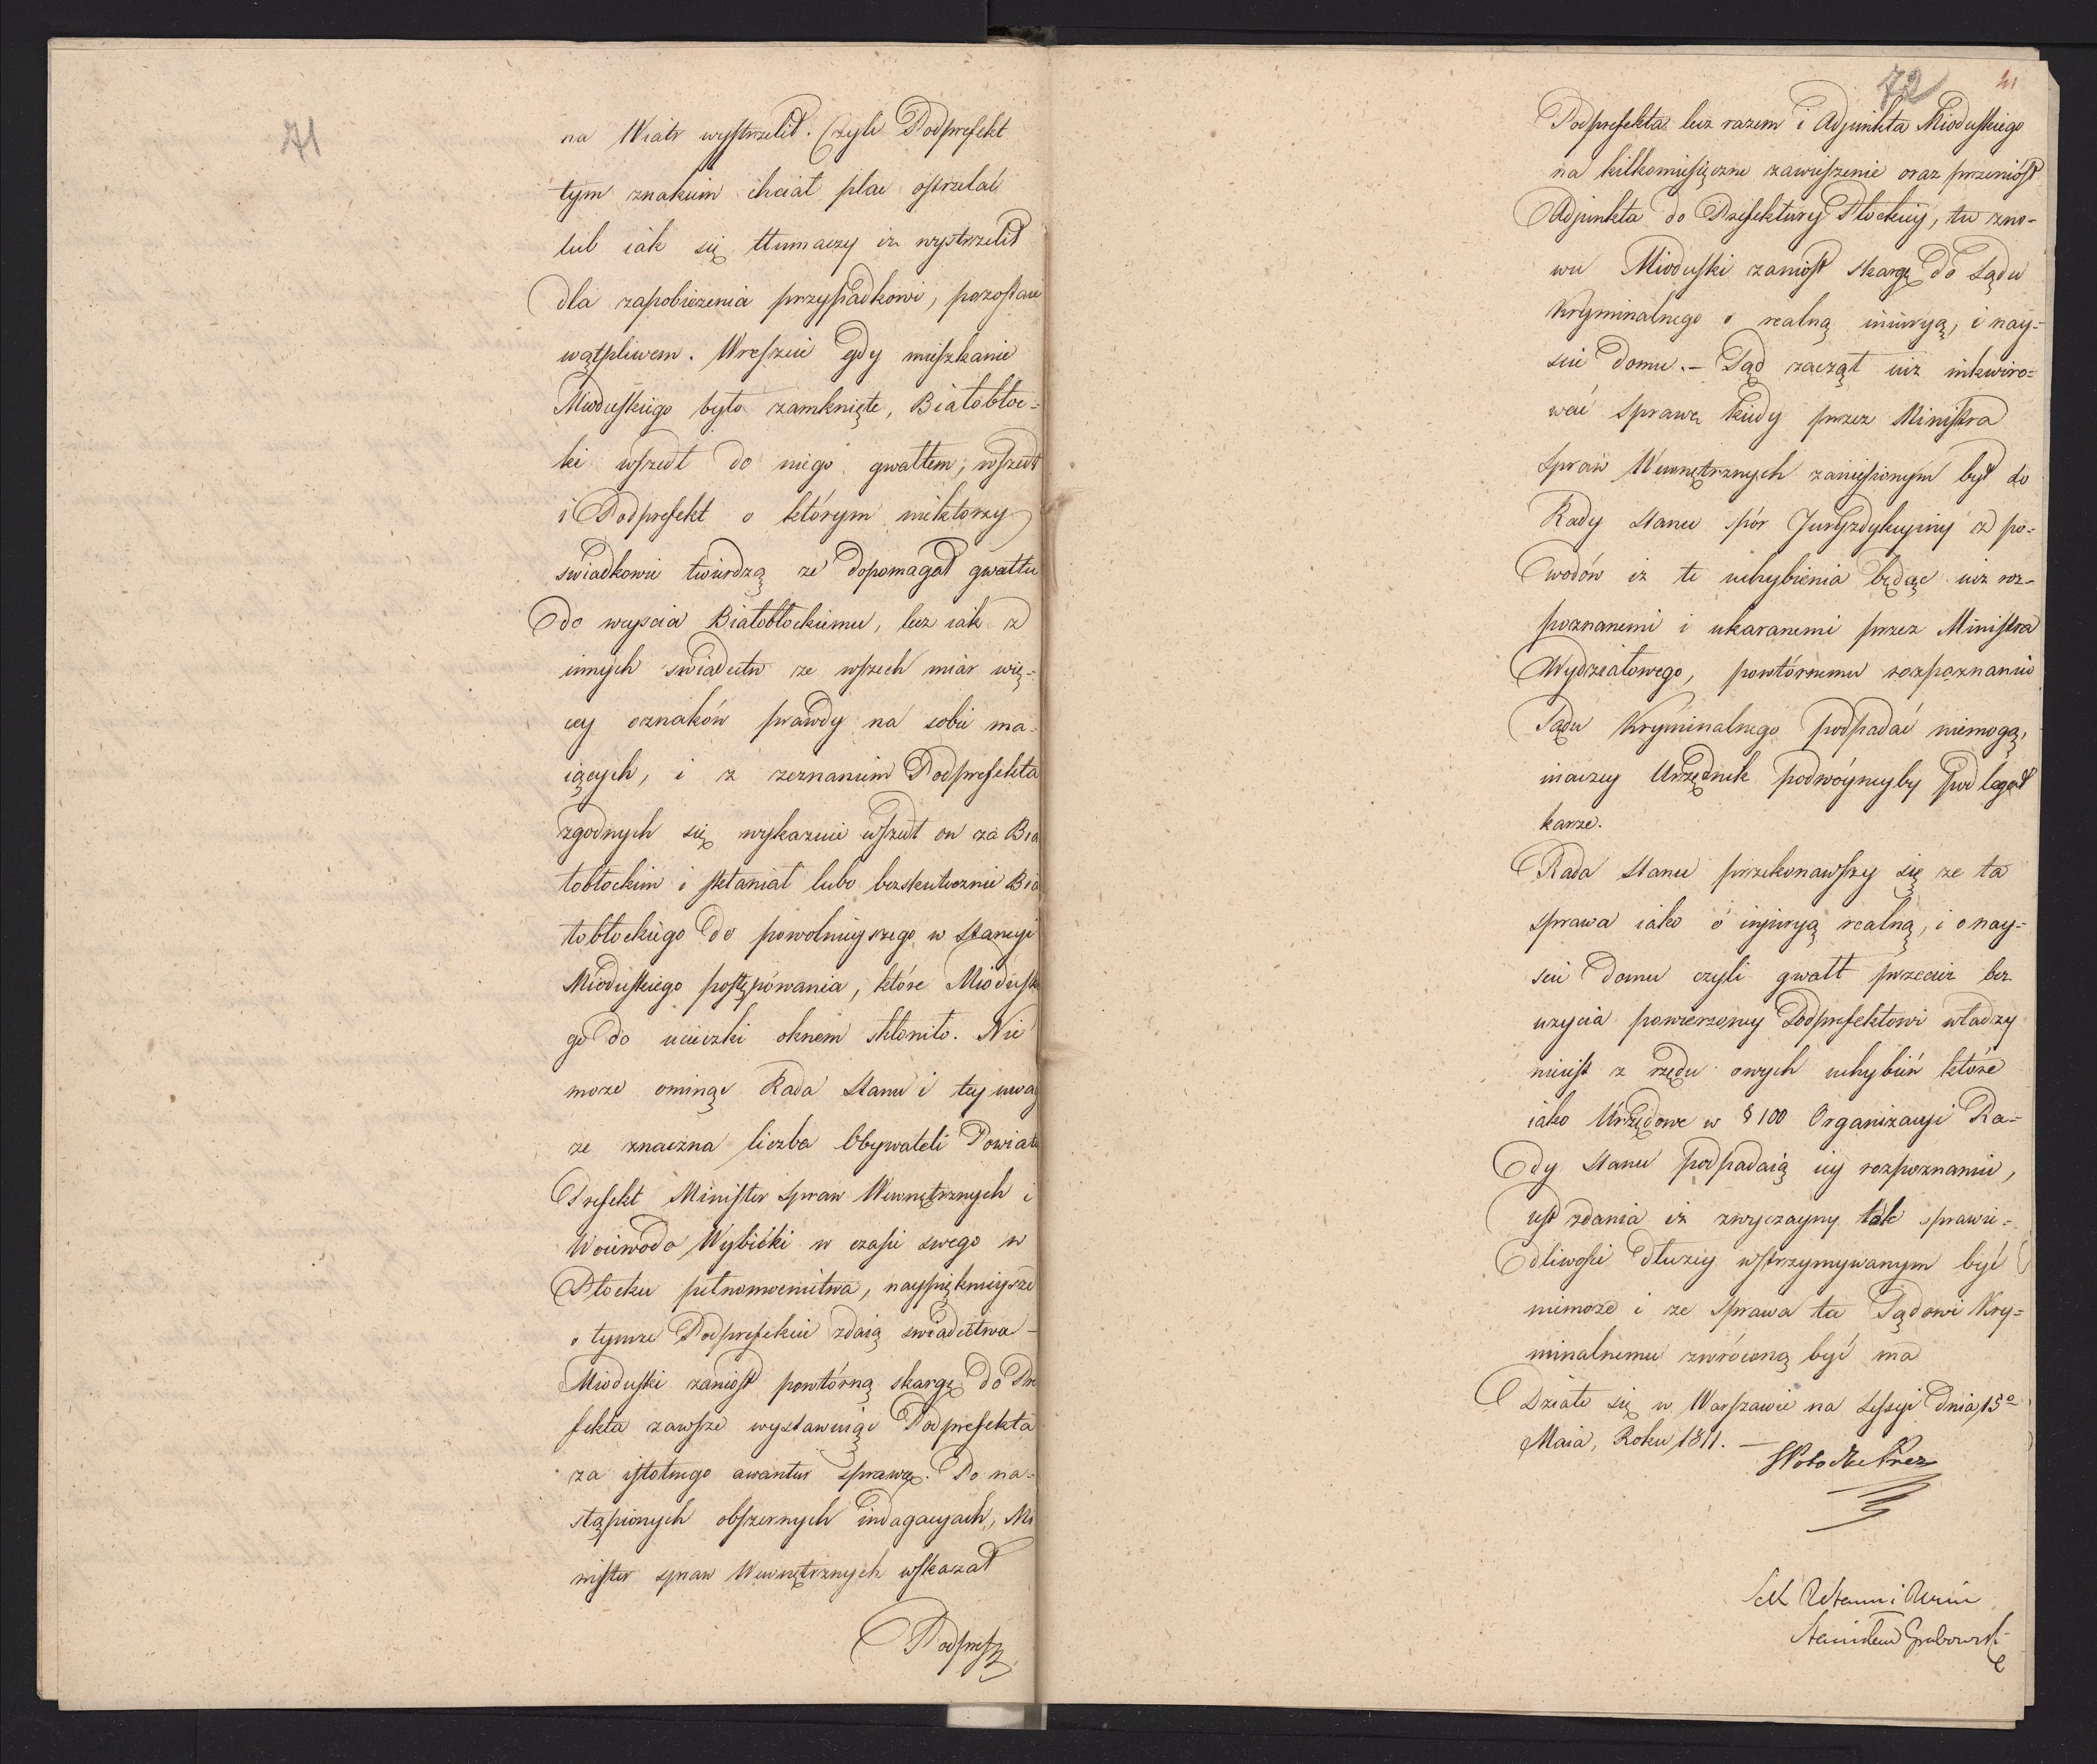 71
na Wiatr wystrzelił. Czyli Podprefekt
tym znakiem chciał plac ostrzelać
lub iak się tłumaczy iż wystrzelił
dla zapobieżenia przypadkowi, pozostaie
wątpliwem. Wreszcie gdy mieszkanie
Mioduskiego było zamknięte, Białobłoc-
ki wszedł do niego gwałtem, wszedł
i Podprefekt o którym niektórzy
swiadkowie twierdzą że dopomagał gwałtu
do weyscia Białobłockiemu, lecz iak z
innych swiadectw ze wszech miar wię-
cey oznaków prawdy na sobie ma-
iących, i z zeznaniem Podprefekta
zgodnych się wykazuie wszedł on za Bia
łobłockim i skłaniał lubo bezskutecznie Bia
łobłockiego do powolnieyszego w Stancyi
Mioduskiego postępowania, które Miodusk
go do ucieczki oknem skłoniło. Nie
może ominąć Rada Stanu i tey uwag
że znaczna liczba Obywateli Powiatu
Prefekt Minister Spraw Wewnętrznych i
Woiewoda Wybicki w czasie swego w
Płocku pełnomocnictwa, naypięknieysze
o tymże Podprefekcie zdaią swiadectwa -
Mioduski zaniósł powtórną skargę do Pre
fekta zawsze wystawuiąc Podprefekta
za istotnego awantur sprawcę. Po na-
stąpionych obszernych indagacyach, Mi
nister spraw Wewnętrznych wskazał
Podpref
72
41
Podprefekta lecz razem i Adjunkta Mioduskiego
na kilkomiesięczne zawieszenie oraz przeniósł
Adjunkta do Prefektury Płockiey, tu zno-
wu Mioduski zaniósł skargę do Sądu
Kryminalnego o realną iniuryą, i nay-
scie domu. - Sąd zaczął iuż inkwiro-
wać sprawę kiedy przez Ministra
Spraw Wewnętrznych zaniesionym był do
Rady Stanu spór Juryzdykcyiny z po-
wodów iż te uchybienia będąc iuż roz-
poznanemi i ukaranemi przez Ministra
Wydziałowego, powtórnemu rozpoznaniu
Sądu Kryminalnego podpadać niemogą,
inaczey Urzędnik podwóyneyby podlegał
karze.
Rada Stanu przekonawszy się że ta
sprawa iako o injuryą realną, i o nay-
scie domu czyli gwałt przecież bez
użycia powierzoney Podprefektowi władzy
nieiest z rzędu owych uchybień które
iako Urzędowe w § 100 Organizacyi Ra-
dy Stanu podpadaią iey rozpoznaniu,
iest zdania iż zwyczayny tok sprawie-
dliwości dłużey wstrzymywanym być
niemoże i że sprawa ta Sądowi Kry-
minalnemu zwróconą być ma
Działo się w Warszawie na Sessyi dnia 13º
Maia, Roku 1811. -
Stanisław Grabowski